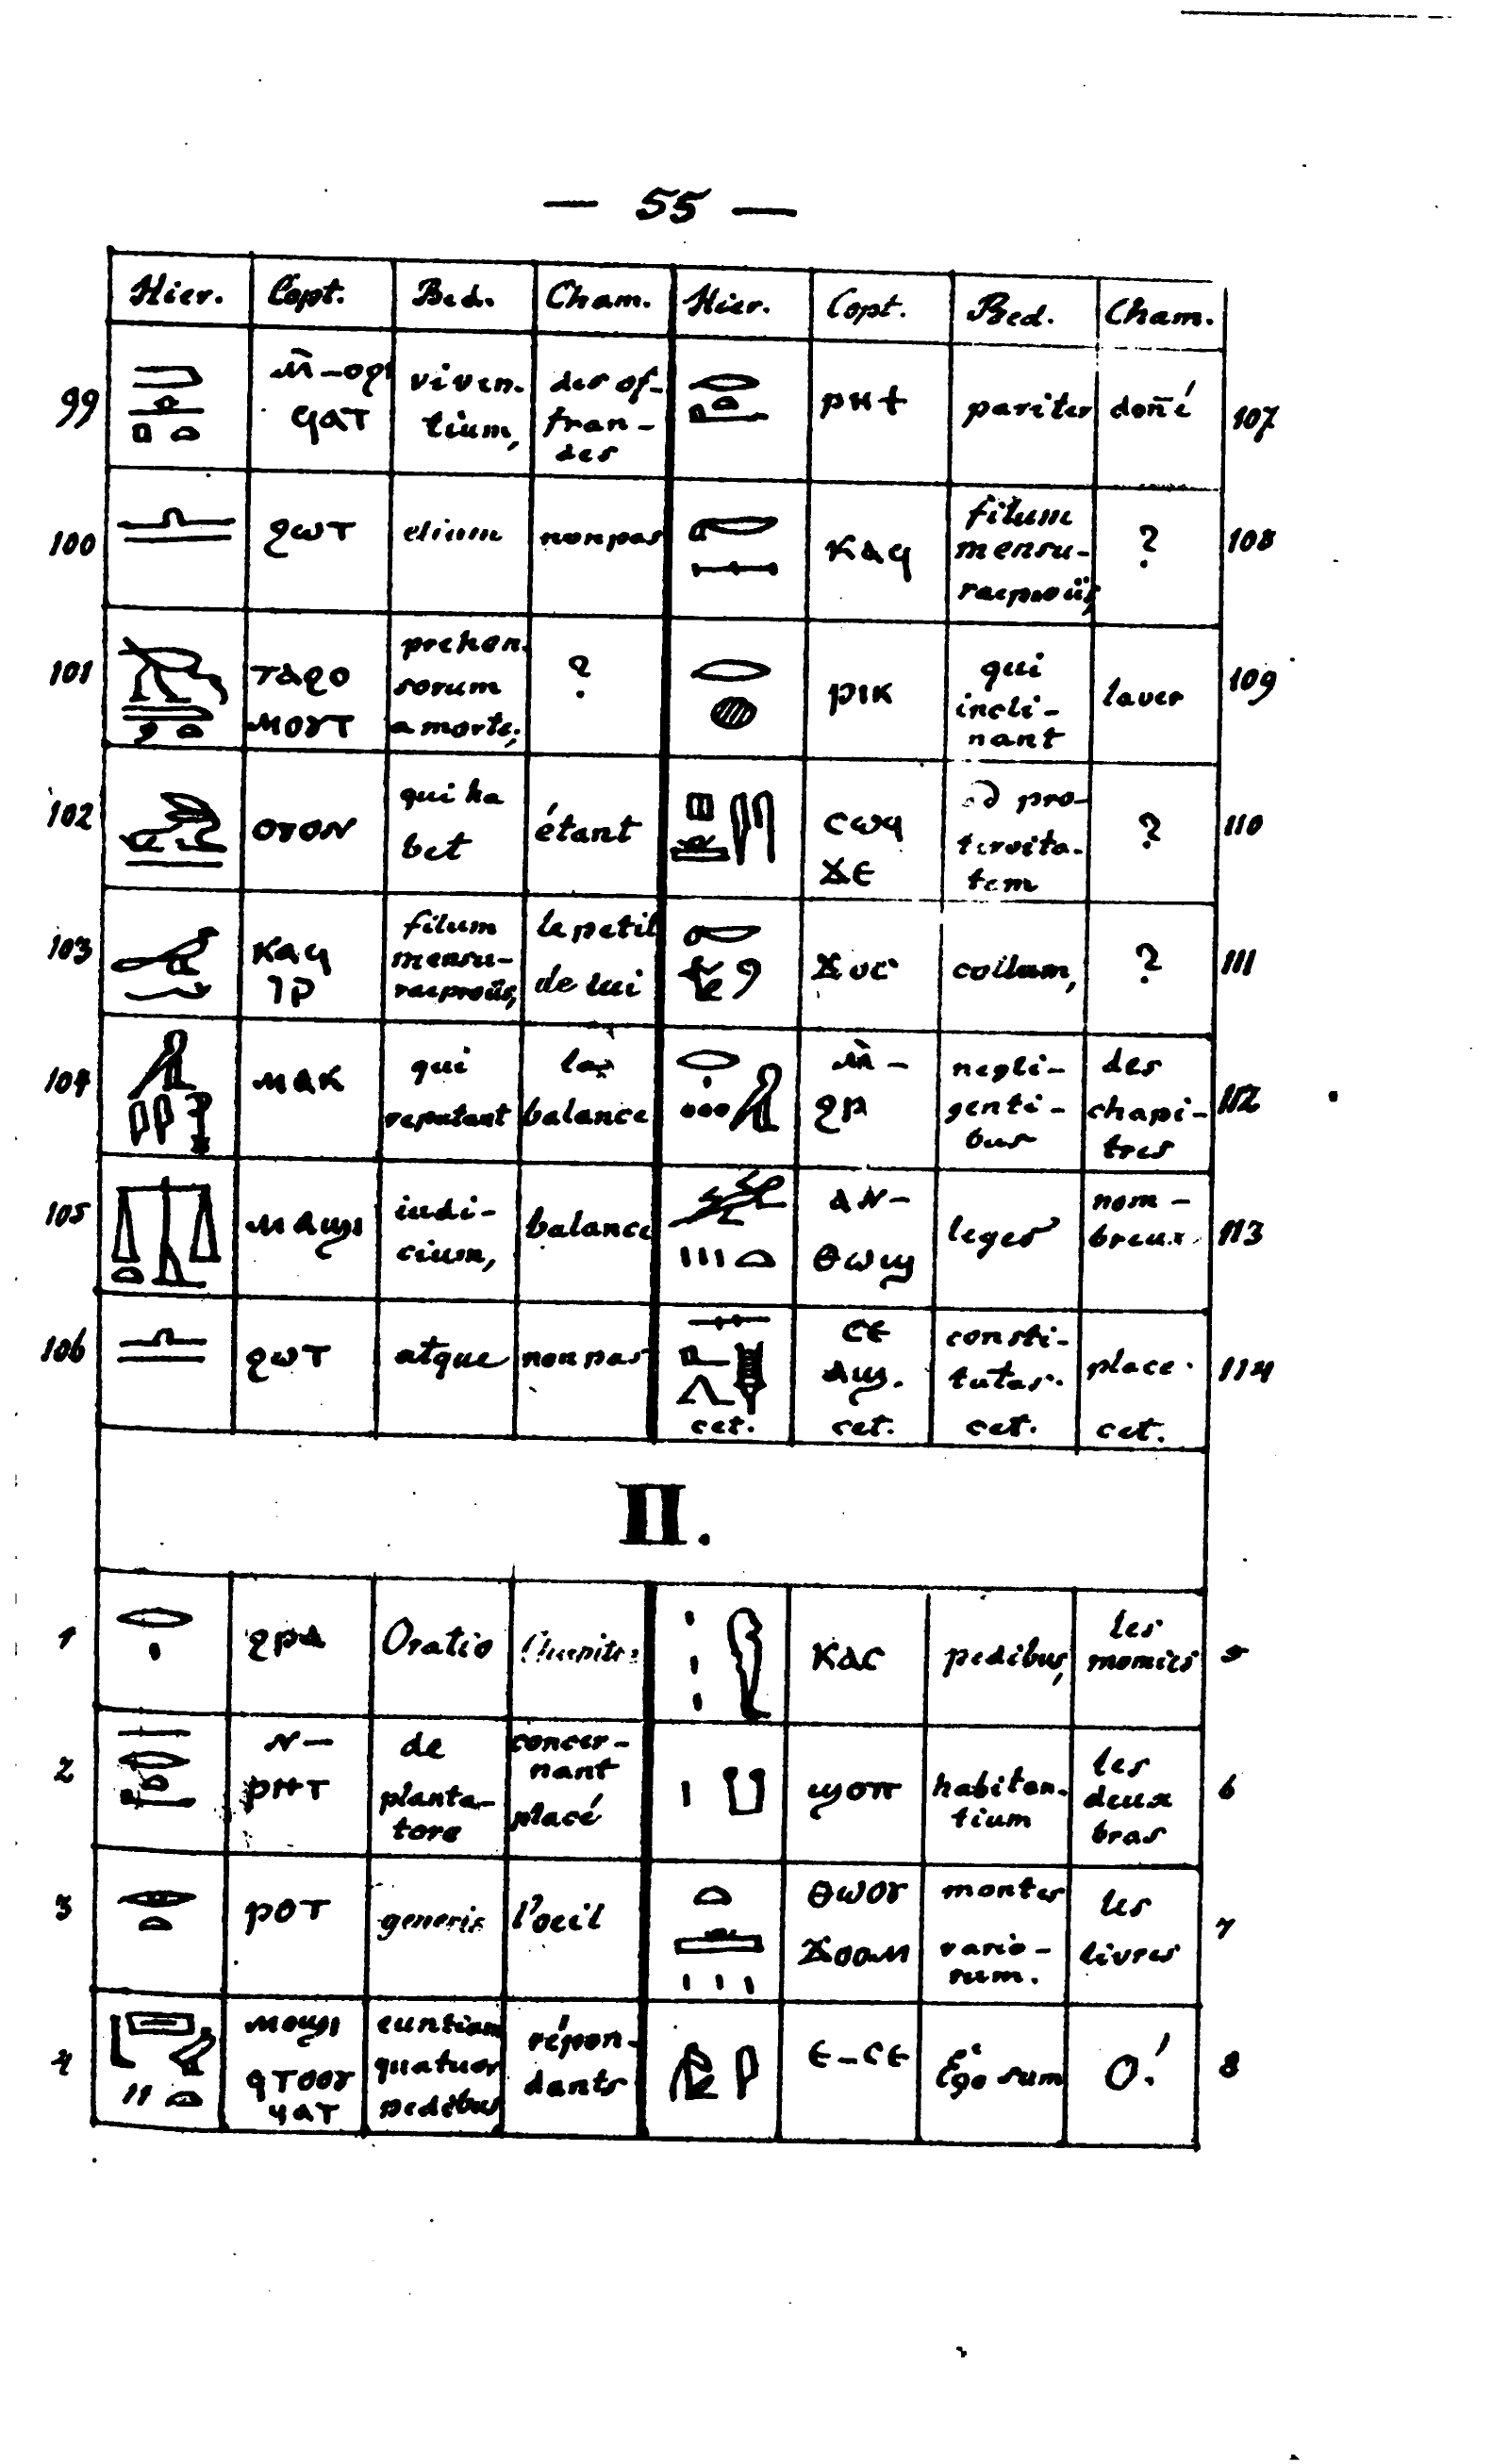 — 55 —
Hier. Copt. Bed. Cham. Hier. Copt. Bed. Cham.
99 viven- tium, des of- fran- des
ⲣⲏϯ pariter doñé 107
100 ϩⲱⲧ etium non pas
ⲕⲁϥ filum mensu- ? 108
101 ⲧⲁϩⲟ ⲙⲟⲩⲧ prehen- sorum a morte; ?
ⲣⲓⲕ qui incli- nant laver 109
102 ⲟⲩⲟⲛ qui ha bet étant
ⲥⲱϥ ϫⲉ ad pro- tervita- tem ? 110
103 ⲕⲁϥ ⲓⲣ filum mensu- le petit de lui
ϫⲟⲥ collum, ? 111
104 ⲙⲁⲕ qui reputant la balance
ⲙ̄- ϩⲣ negli- genti- bus des chapi- tres 112
105 ⲙⲁϣⲓ iudi- cium, balance
ⲁⲛ- ⲑⲱϣ leges nom- breux 113
106 ϩⲱⲧ atque non pas
ⲥⲉ ⲁϣ. cet. consti- tutas. cet. place. cet. 114
cet.
II.
1 ϩⲣⲁ Oratio
ⲕⲁⲥ pedibus, les momies 5
2 ⲛ- ⲣⲏⲧ de planta- tore concer- nant placé
ϣⲟⲡ habitan- tium les deux bras 6
3 ⲣⲟⲧ generis l'oeil
ⲑⲱⲟⲩ ϫⲟⲟⲙ montes vario- rum. les livres 7
4 ⲙⲟϣⲓ ϥⲧⲟⲟⲩ ϥⲁⲧ euntium quatuor pedibus répon- dants
ⲉ-ⲥⲉ Ego sum O! 8